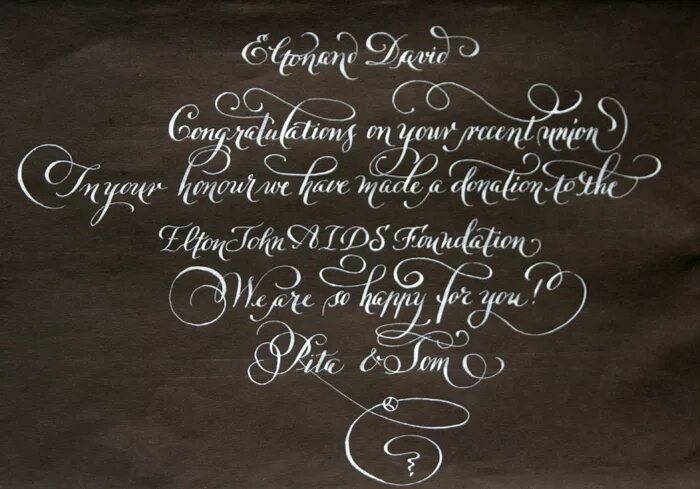 Elton and David
Congratulations on your recent union
In your honour we have made a donation to the
Elton John AIDS Foundation
We are so happy for you!
Rita & Tom